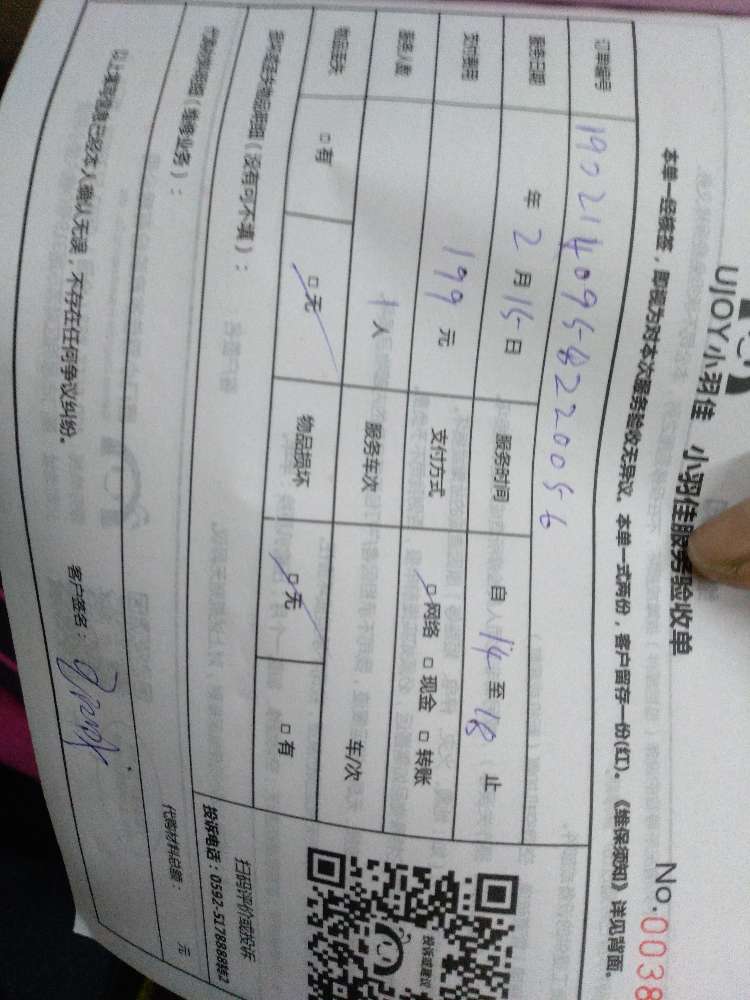 UJOY小羽佳 小羽佳服务验收单
No.0038
本单一经签签，即视为对本次服务验收无异议。本单一式两份，客户留存一份(红)。《维保须知》详见背面。
订单编号 1902140958220056
服务日期 年 2 月 15 日 服务时间 自 14 至 18 止
支付费用 199 元 支付方式 □ 网络 □ 现金 □ 转账
服务人数 1 人 服务车次 车/次
物品丢失 □ 有 □ 无 物品损坏 □ 无 □ 有
物品明细（没有可不填）：
扫码评价或投诉
投诉电话：0592-5178888转2
投诉或建议
（维修业务）：
代购材料总额： 元
以上填写信息已经本人确认无误，不存在任何争议纠纷。 客户签名：